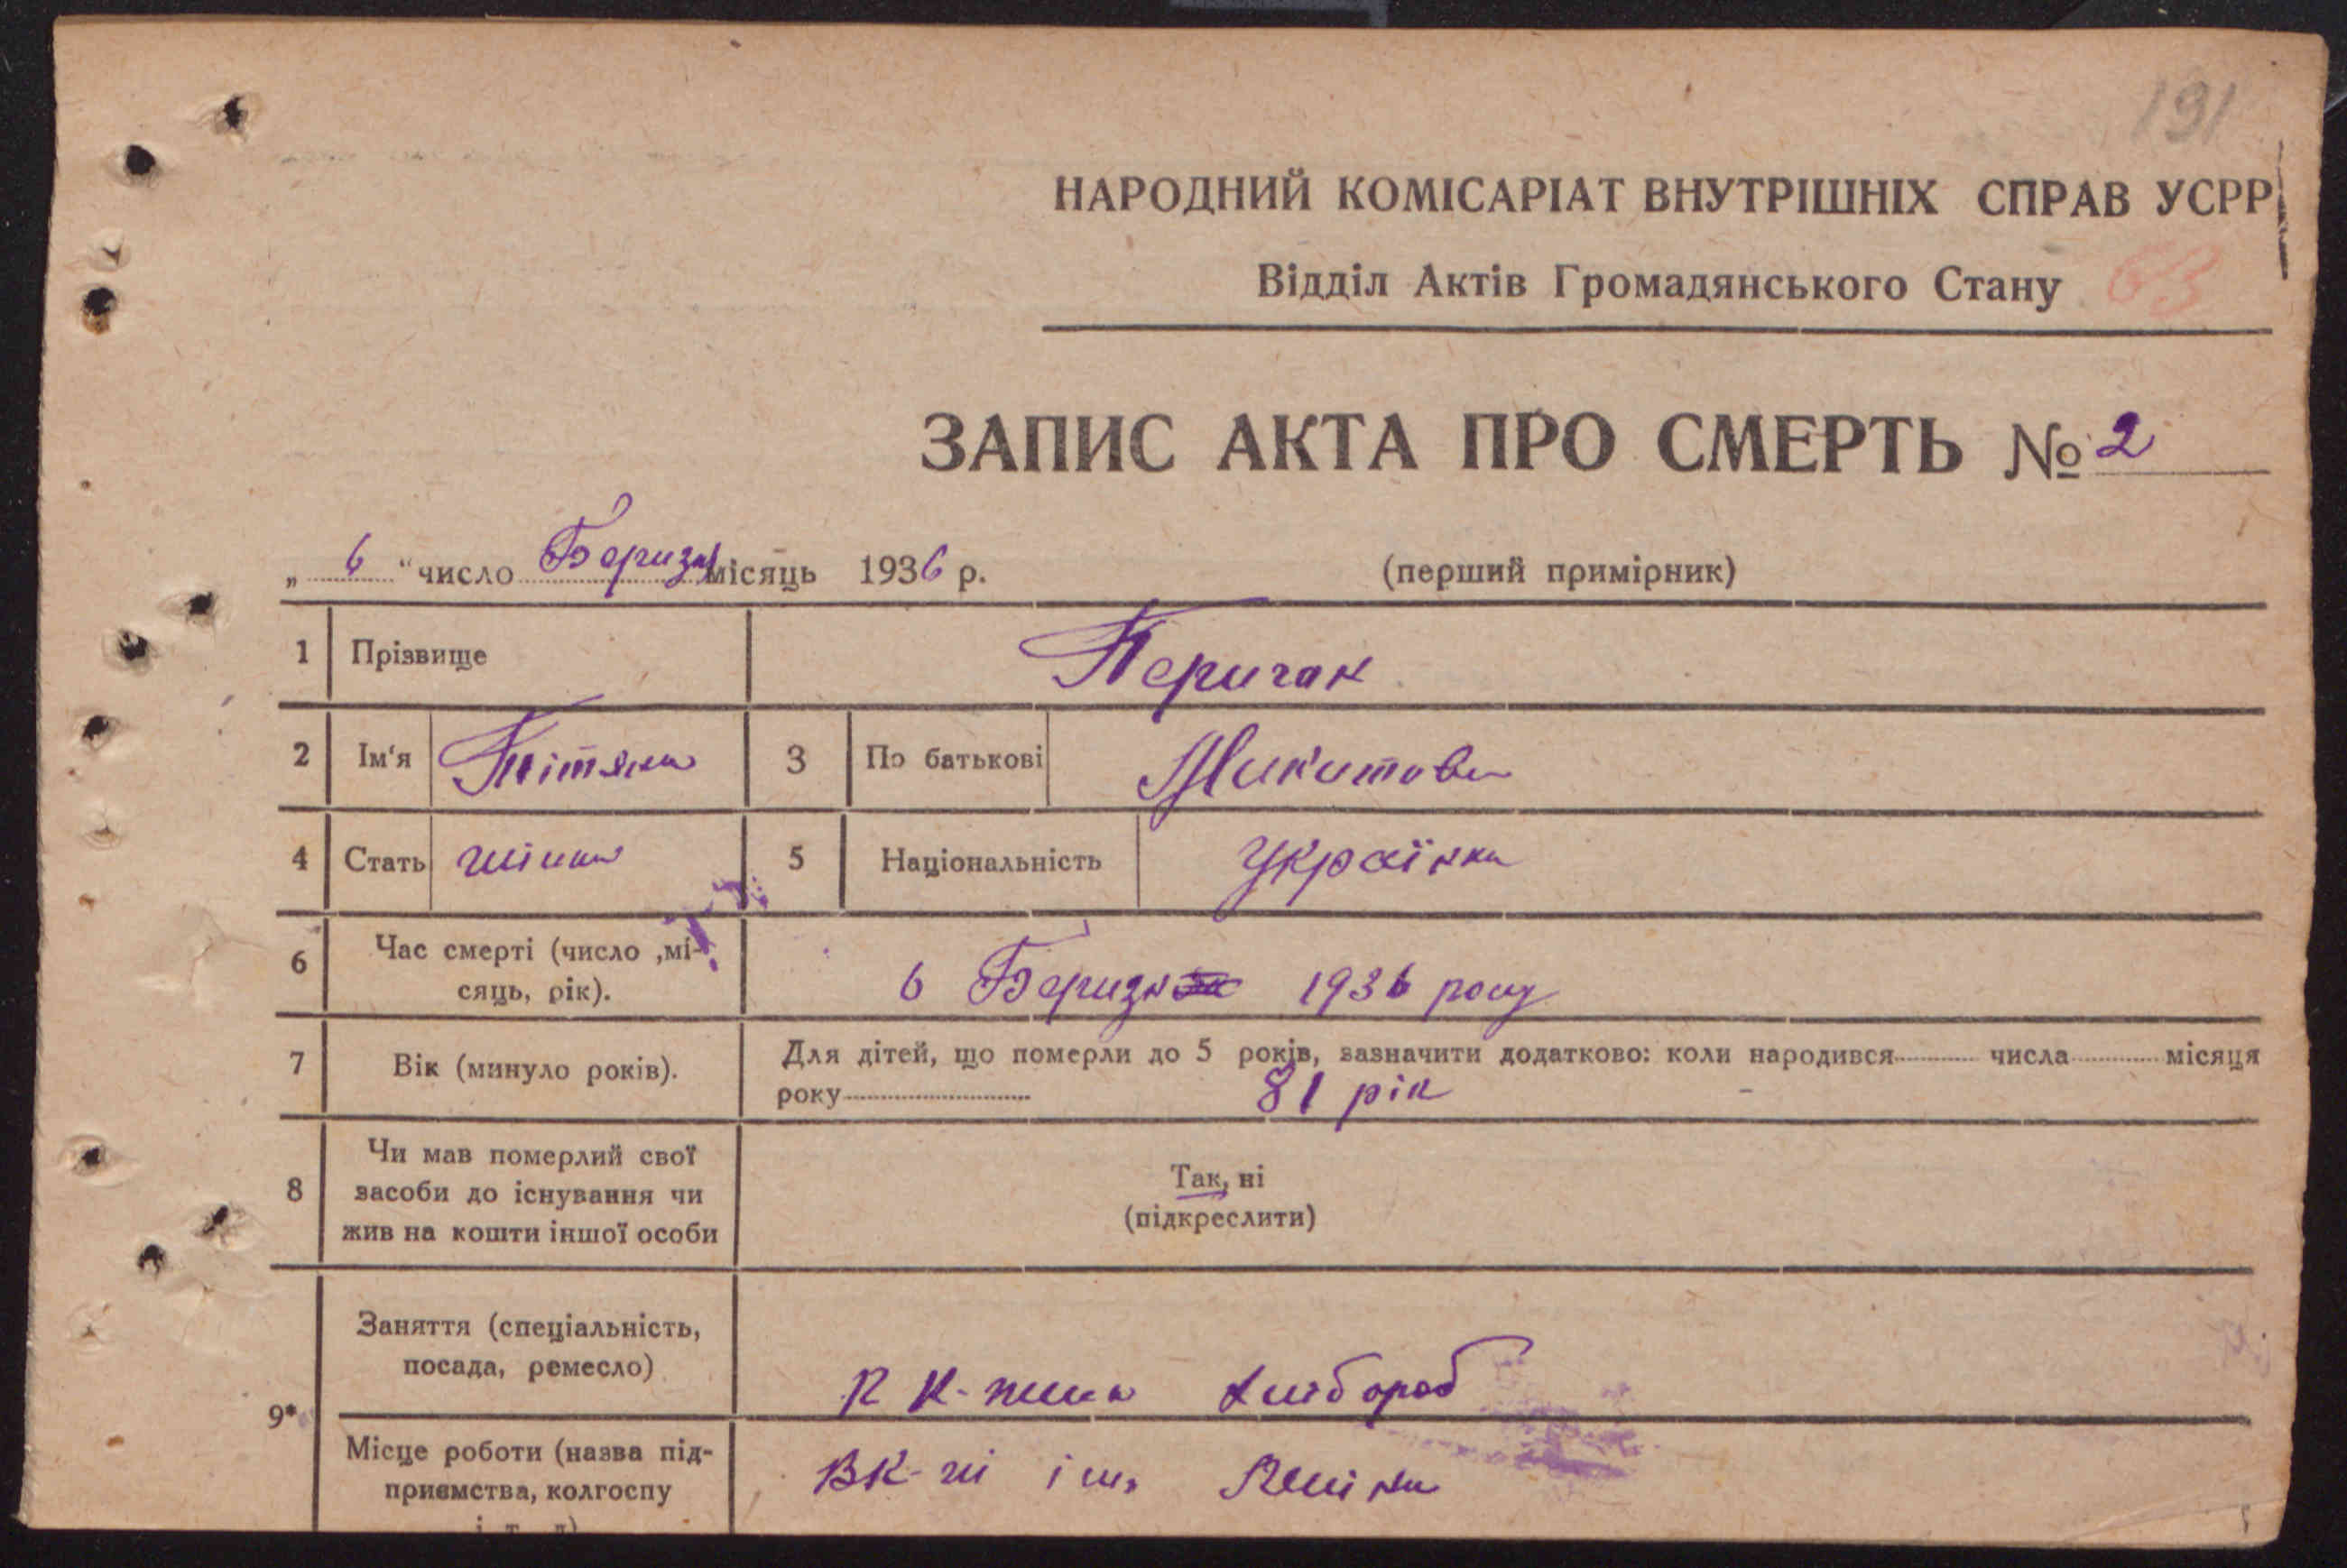 191
НАРОДНИЙ КОМІСАРІАТ ВНУТРІШНІХ СПРАВ УСРР
Відділ Актів Громадянського Стану 63
ЗАПИС АКТА ПРО СМЕРТЬ № 2
„ 6 “ число Беризня місяць 1936 р. (перший примірник)
1 Прізвище Перичак
2 Ім‘я Тітяна 3 По батькові Микитовн
4 Стать жінка 5 Національність Українка
6 Час смерті (число ,мі-
сяць, рік). 6 Беризн 1936 року
7 Вік (минуло років). Для дітей, що померли до 5 років, зазначити додатково: коли народився числа місяця
року 81 рік
8 Чи мав померлий свої
засоби до існування чи
жив на кошти іншої особи
Так, ні
(підкреслити)
9* Заняття (спеціальність,
посада, ремесло)
хлібороб
Місце роботи (назва під-
приємства, колгоспу
і т. д)
ім.